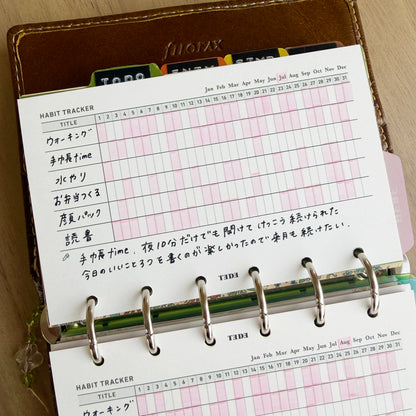 filofax
TODO
Jan Feb Mar Apr May Jun Jul Aug Sep Oct Nov Dec
HABIT TRACKER
TITLE 1 2 3 4 5 6 7 8 9 10 11 12 13 14 15 16 17 18 19 20 21 22 23 24 25 26 27 28 29 30 31
ウォーキング
手帳time
水やり
お弁当つくる
顔パック
読書
手帳time、夜10分だけでも開けて けっこう続けられた
今日のいいこと3つを書くのが楽しかったので来月も続けたい。
Jan Feb Mar Apr May Jun Jul Aug Sep Oct Nov Dec
HABIT TRACKER
TITLE 1 2 3 4 5 6 7 8 9 10 11 12 13 14 15 16 17 18 19 20 21 22 23 24 25 26 27 28 29 30 31
ウォーキング